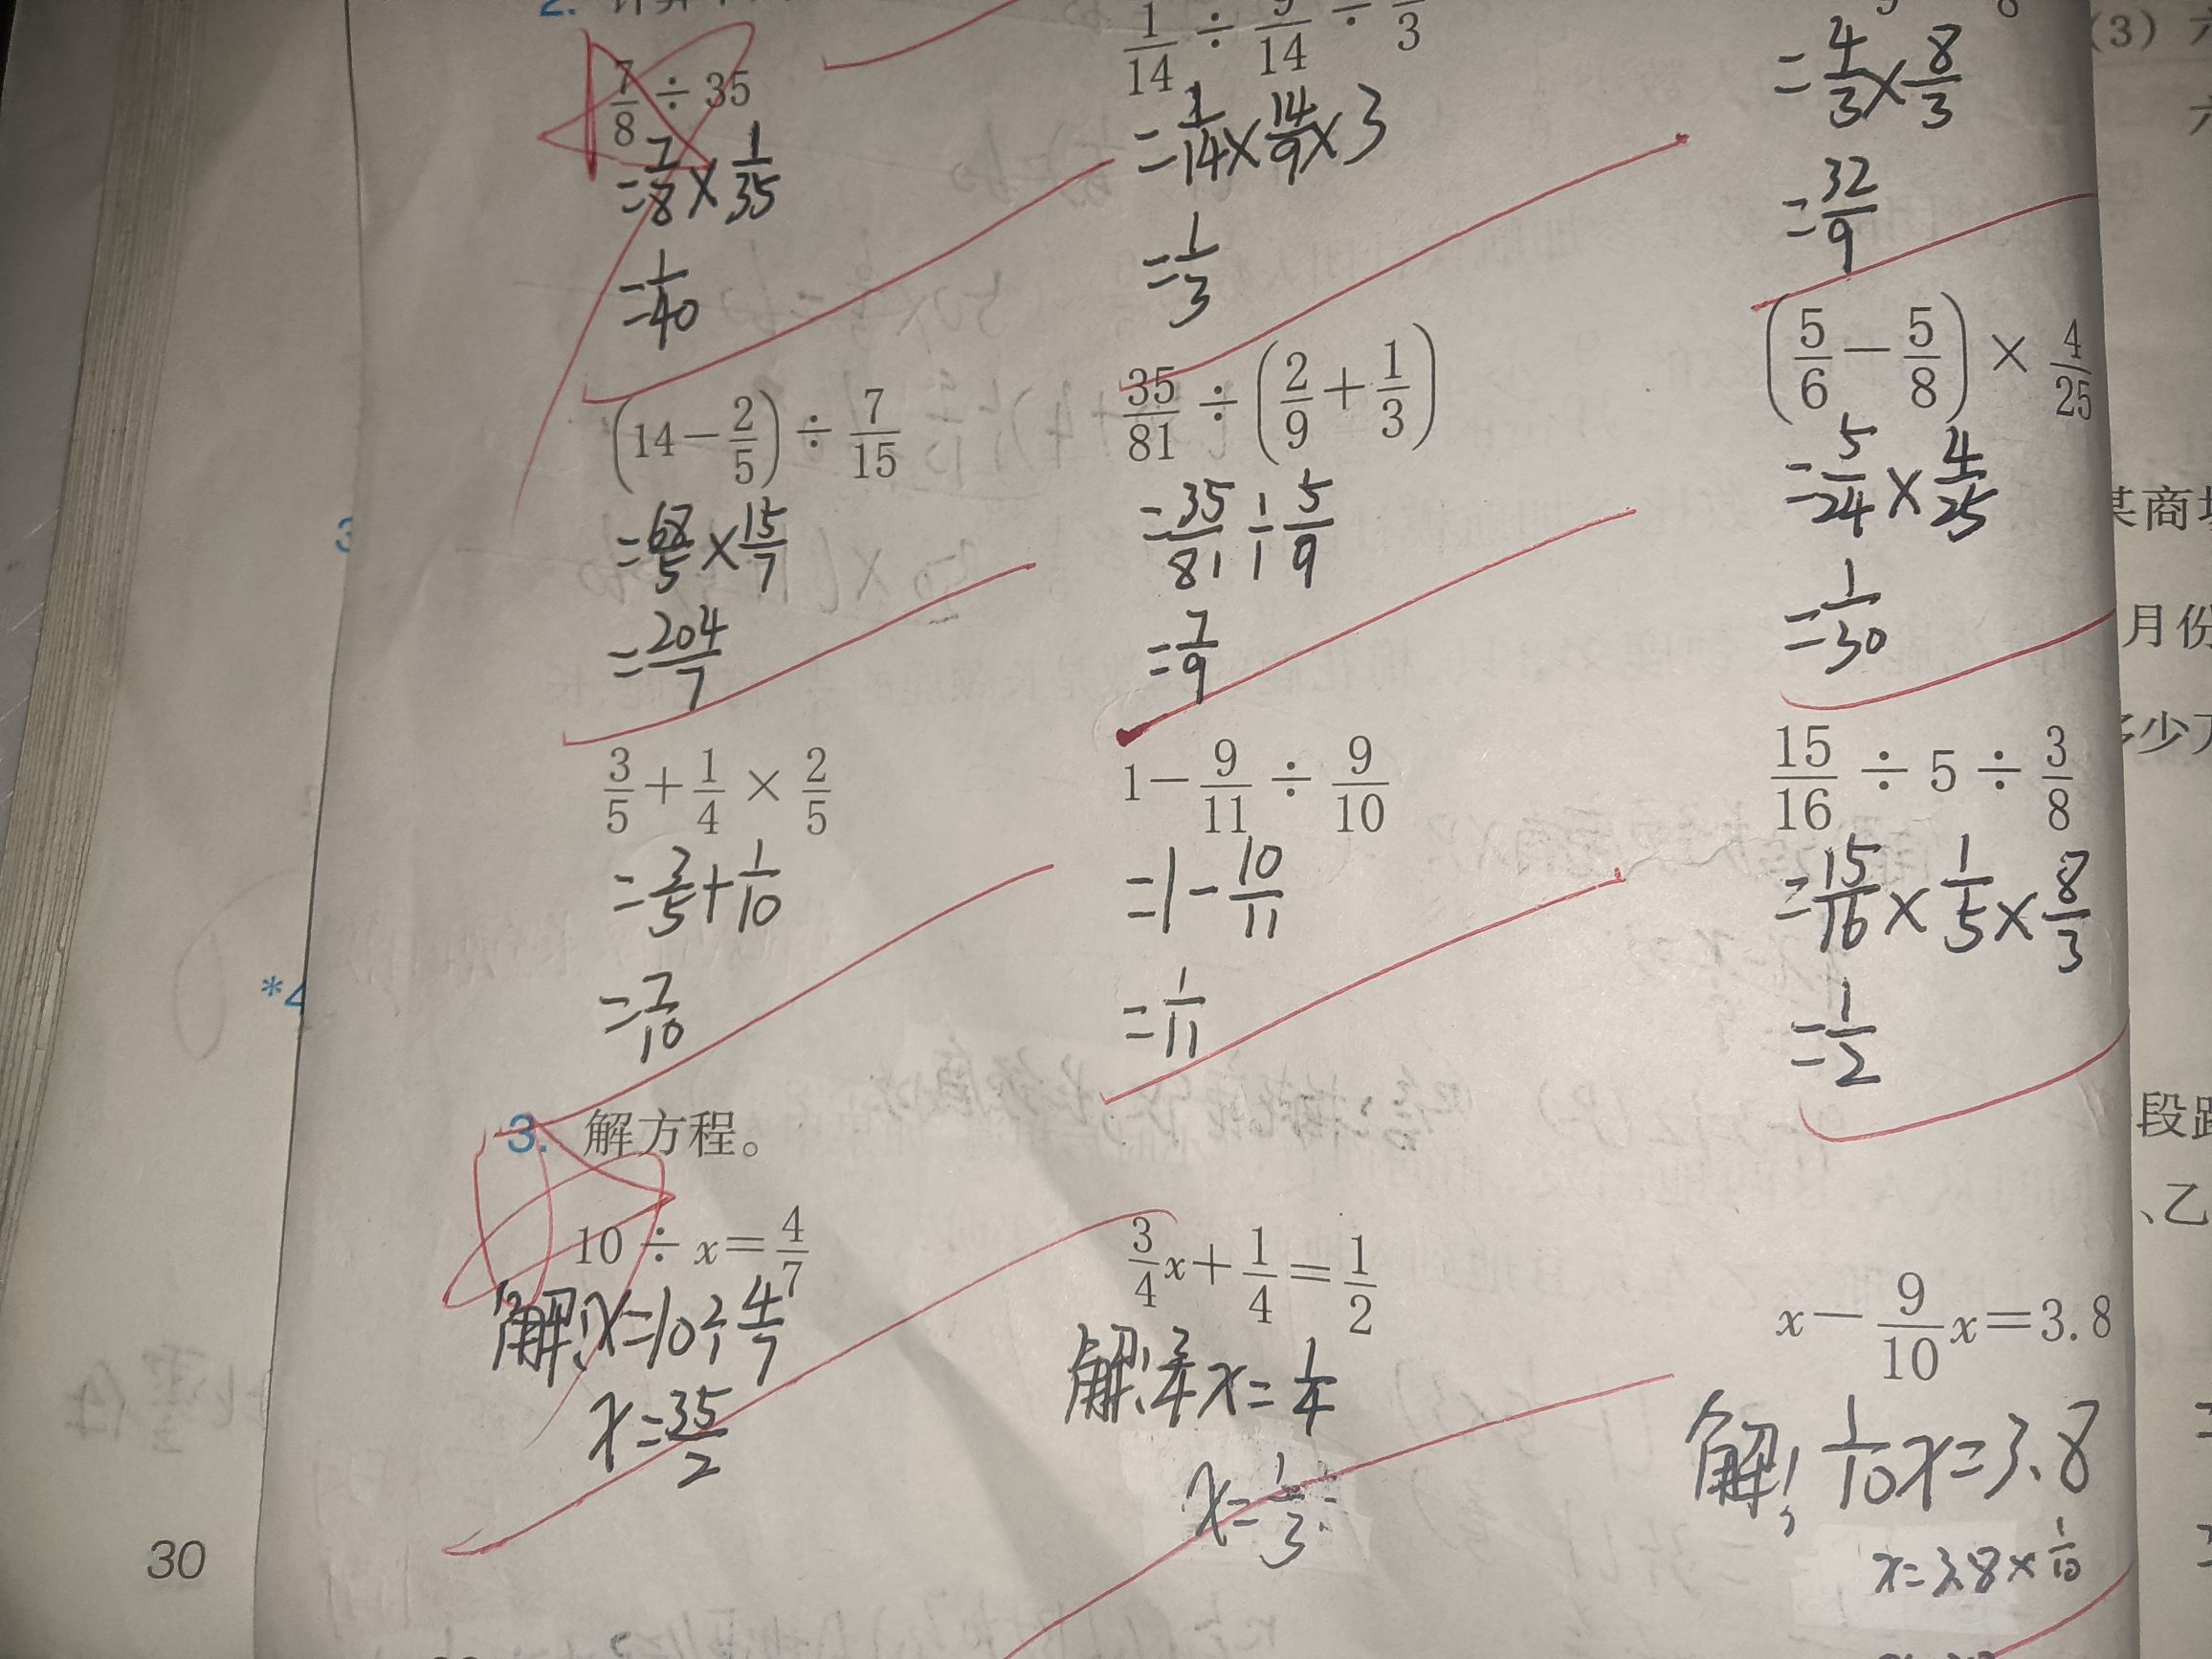 7/8 ÷ 35
=7/8×1/35
=1/40
=1/14×14/9×3
=1/3
=4/3×8/3
=32/9
(14-2/5) ÷ 7/15
=68/5×15/7
=204/7
35/81 ÷ (2/9+1/3)
=35/81÷5/9
=7/9
(5/6-5/8) × 4/25
=5/24×4/25
=1/30
3/5+1/4 × 2/5
=3/5+1/10
=7/10
1-9/11 ÷ 9/10
=1-10/11
=1/11
15/16 ÷ 5 ÷ 3/8
=15/16×1/5×8/3
=1/2
3. 解方程。
10 ÷ x=4/7
解:x=10÷4/7
x=35/2
3/4x+1/4=1/2
解:3/4x=1/4
x=1/3
x-9/10x=3.8
解:1/10x=3.8
x=3.8×1/10
30
(3)
*4
某商场
月份
多少万
段路
、乙